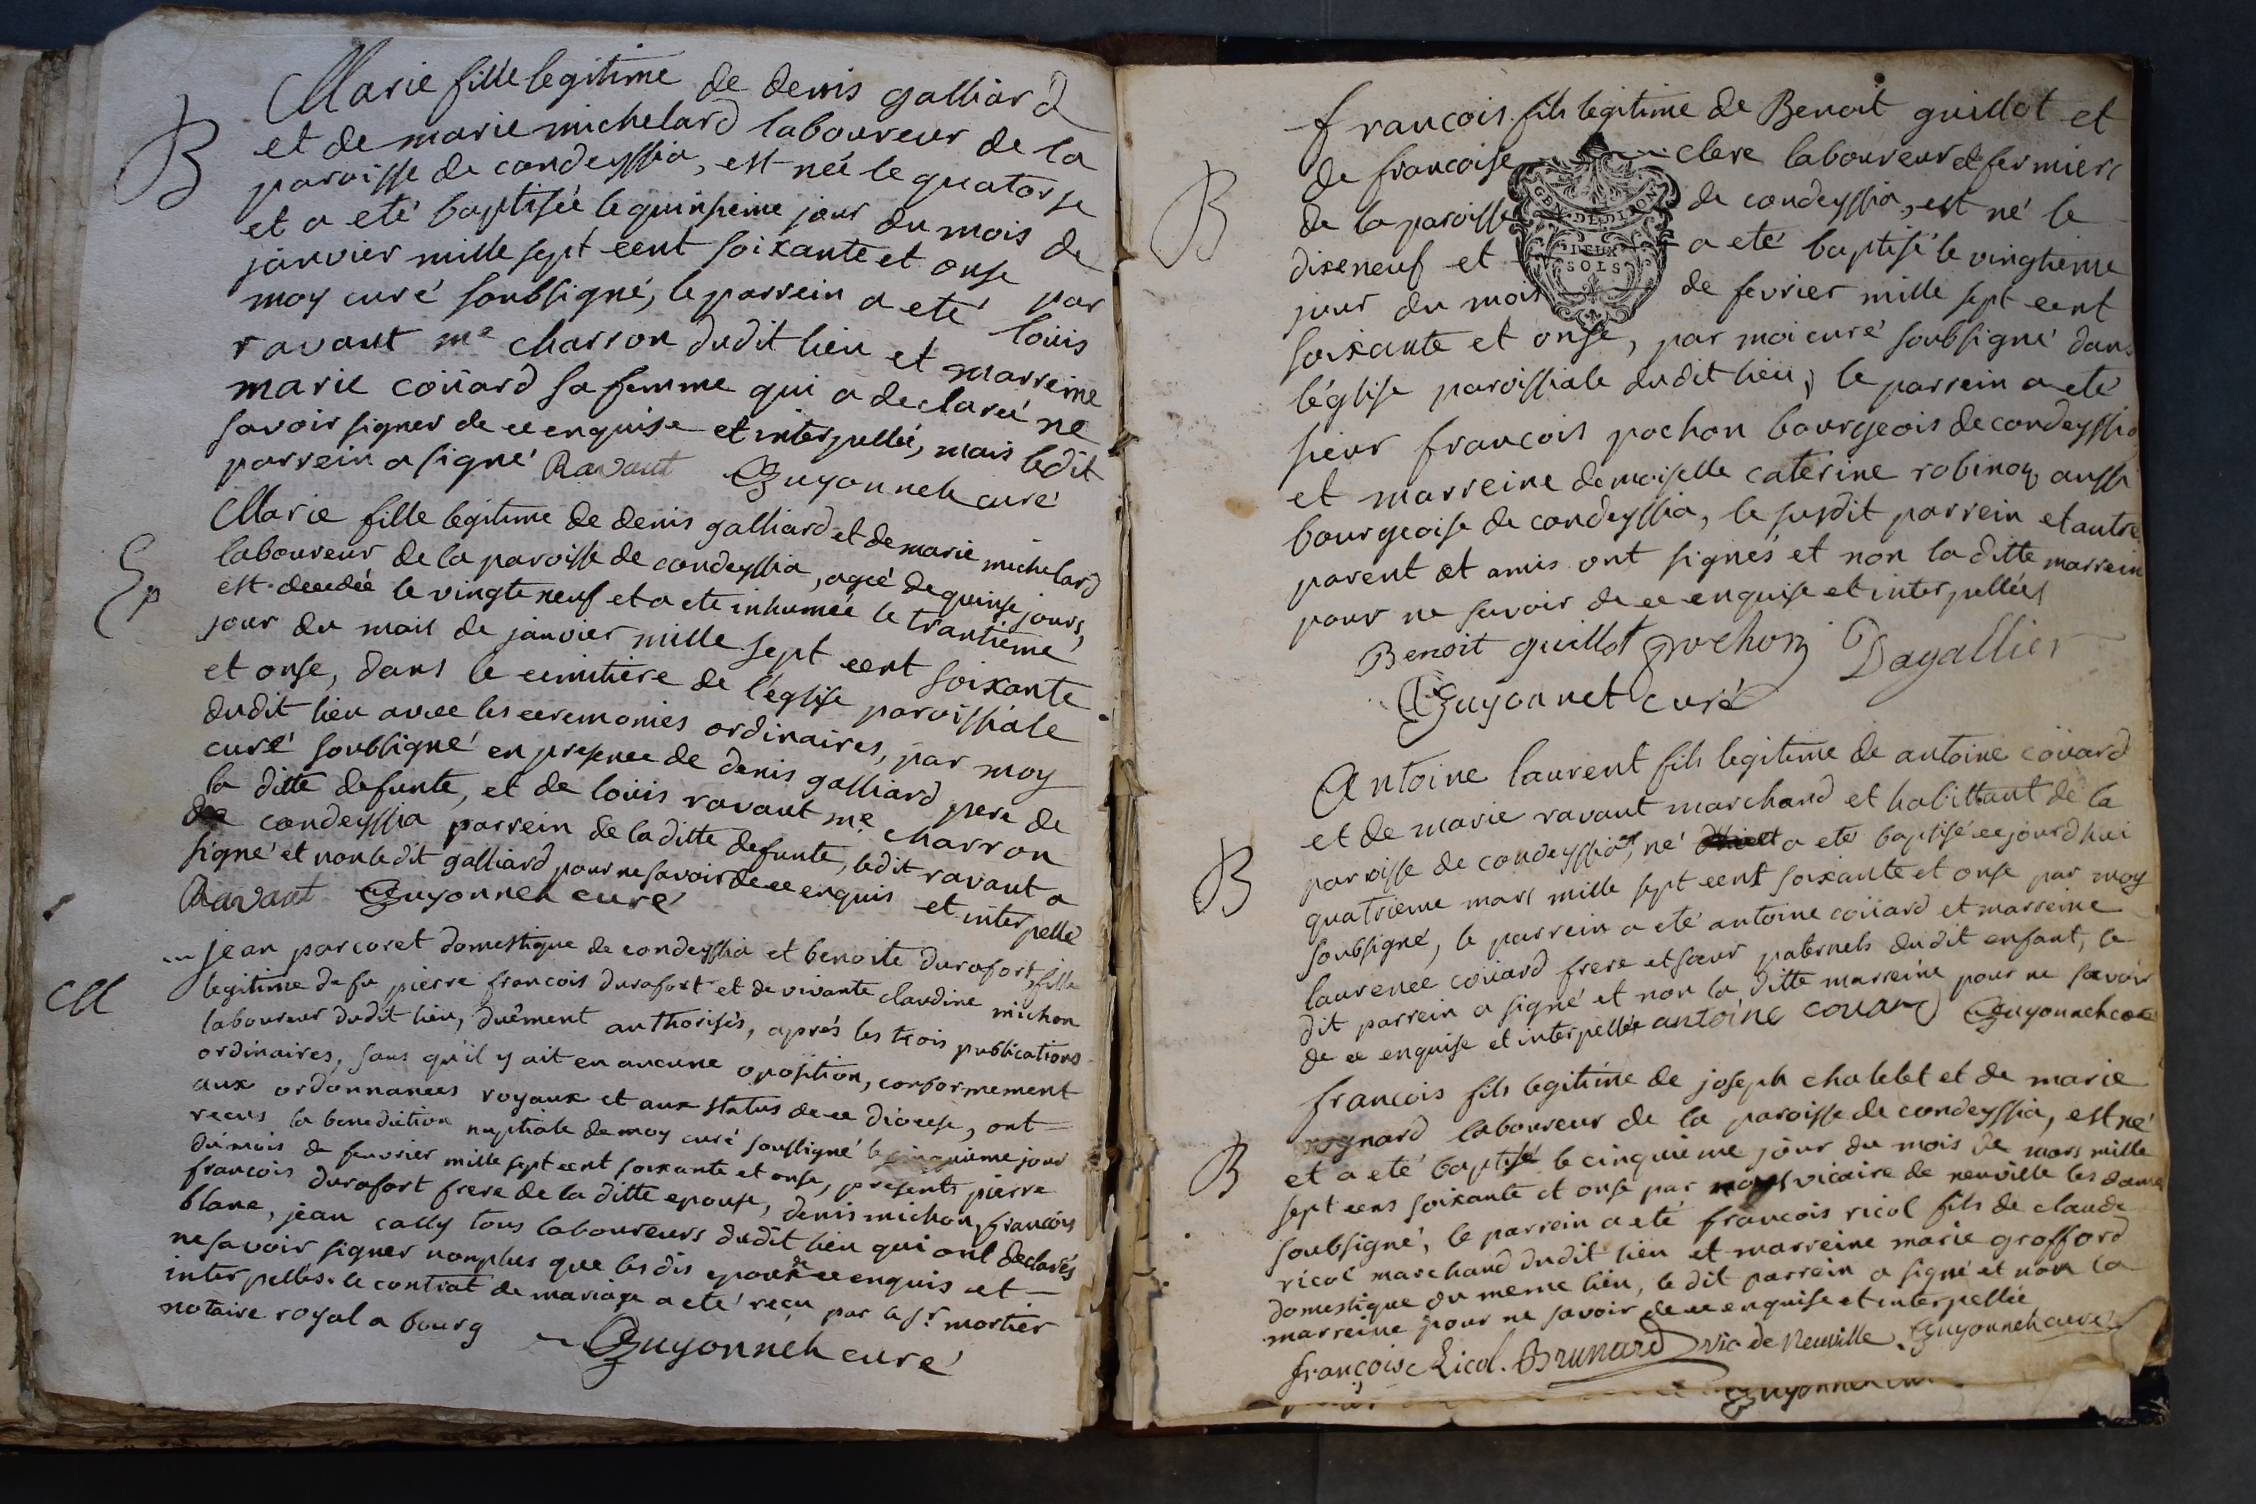 Marie fille legitime de denis galliard
B
et de marie michelard laboureur de la
paroisse de condeyssia, est née le quatorse
et a eté baptisée le quinsieme jour du mois de
janvier mille sept cent soixante et onse par
moy curé soubsigné, le parrein a eté louis
ravant me charron dudit lieu et marreine
marie coüard sa femme qui a declaré ne
savoir signer de ce enquise et interpellée, mais ledit
parrein a signé Ravaut Guyonnet curé
Marie fille legitime de denis galliard et de marie michelard
Ep
laboureur de la paroisse de condeyssia, ageé de quinse jours,
est decedée le vingt neuf et a ete inhumée le trantieme
jour du mois de janvier mille sept cent soixante
et onse, dans le cimitiere de l'eglise paroissiale
dudit lieu avec les ceremonies ordinaires, par moy
curé soubsigné en presence de denis galliard pere de
la ditte defunte, et de loüis ravaut me charron
de condeyssia parrein de la ditte defunte, ledit ravant a
signé et non ledit galliard pour ne savoir de ce enquis et interpellé
Ravaut Guyonnet curé
jean parcoret domestique de condeyssia et benoite durafort fille
M
legitime de fu pierre francois durafort et de vivante claudine michon
laboureur dudit lieu, duêment authorisés, aprés les trois publications
ordinaires, sans qu'il y ait eu aucune oposition, conformement
aux ordonnances royaux et aux status de ce diocese, ont
recus la benediction nuptiale de moy curé soussigné le cinquieme jour
du mois de feuvrier mille sept cent soixante et onse, presents pierre
francois durafort frere de la ditte epouse, denis michon, francois
blanc, jean cally tous laboureurs dudit lieu qui ont declarés
ne savoir signer nonplus que les dis epoux de ce enquis et
interpellés. le contrat de mariage a eté reçu par le sr. mortier
notaire royal a bourg
Guyonnet curé
francois fils legitime de Benoit guillot et
B
de francoise clere laboureur et fermier
de la paroisse de condeyssia, est né le
dixneuf et a eté baptisé le vingtieme
jour du mois de fevrier mille sept cent
GEN. DE DIJON
DEUX
SOLS
soixante et onse, par moi curé soubsigné dans
l'église paroissiale dudit lieu, le parrein a eté
sieur francois pochon bourgeois de condeyssia
et marreine demoiselle caterine robinon aussi
bourgeoise de condeyssia, le susdit parrein et autre
parent et amis ont signés et non la ditte marreine
pour ne savoir de ce enquise et interpellées
Benoit guillot pochon Dagallier
Guyonnet curé
Antoine laurent fils legitime de antoine coüard
et de marie ravaut marchand et habittant de la
B
paroisse de condeyssia, né a eté baptisé cejourdhui
quatrieme mars mille sept cent soixante et onse par moy
soubsigné, le parrein a eté antoine coüard et marreine
laurence coüard frere et sœur paternels dudit enfant, le
dit parrein a signé et non la ditte marreine pour ne savoir
de ce enquise et interpellée antoine couard Guyonnet curé
francois fils legitime de joseph chatelet et de marie
laboureur de la paroisse de condeyssia, est né
B
et a eté baptisé le cinquieme jour du mois de mars mille
sept cens soixante et onse par vicaire de neuville les dames
soubsigné, le parrein a eté francois ricol fils de claude
ricol marchand dudit lieu et marreine marie grofford
domestique du meme lieu, le dit parrein a signé et non la
marreine pour ne savoir de ce enquise et interpellée
françois Ricol. Brunard vic de Neuville. Guyonnet curé
Guyonnet